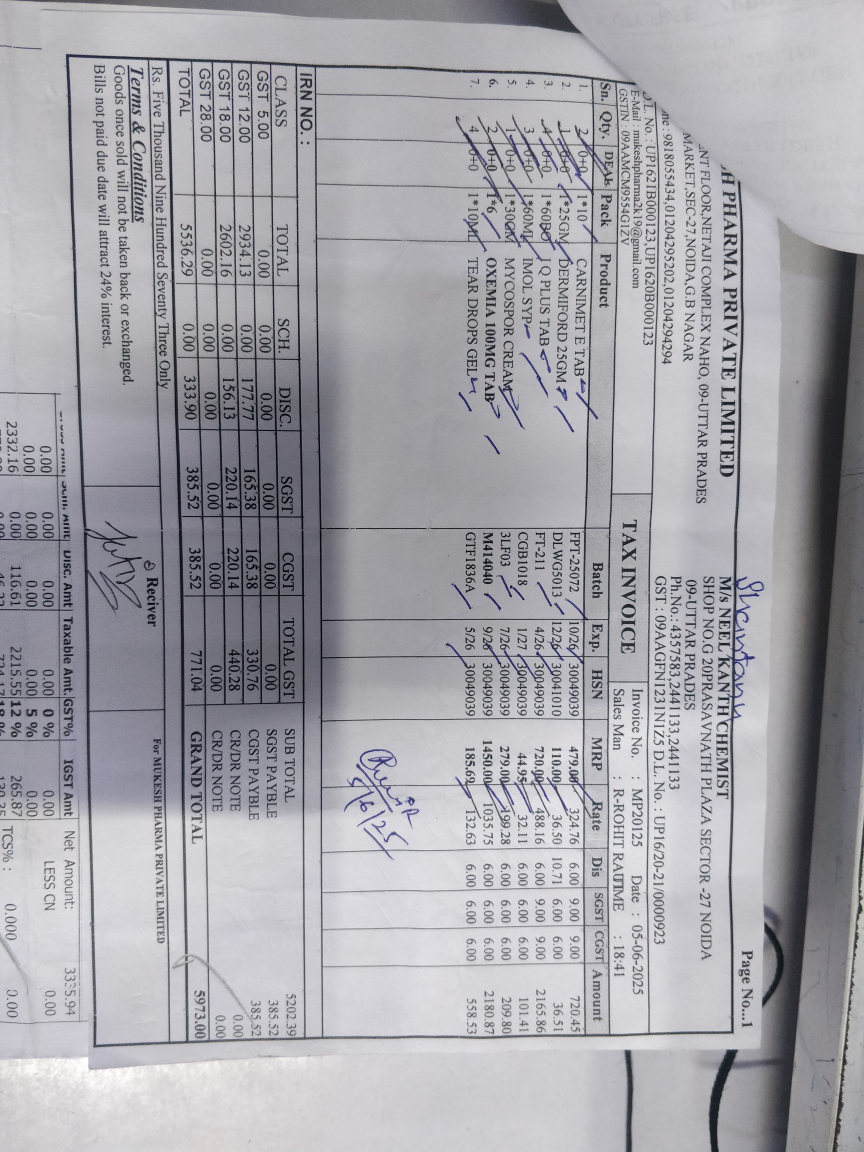 Page No...1
H PHARMA PRIVATE LIMITED
ENT FLOOR,NETAJI COMPLEX NAHO, 09-UTTAR PRADES
MARKET,SEC-27,NOIDA,G.B NAGAR
ne : 9818055434,01204295202,01204294294
D.L. No. : UP1621B000123,UP1620B000123
E-Mail : mukeshpharma2k19@gmail.com
GSTIN : 09AAMCM9554G1ZV
M/s NEEL KANTH CHEMIST
SHOP NO.G 20PRASAVNATH PLAZA SECTOR -27 NOIDA
09-UTTAR PRADES
Ph.No.: 4357583,2441133,2441133
GST : 09AAGFN1231N1Z5 D.L. No. : UP16/20-21/0000923
TAX INVOICE
Invoice No. : MP20125 Date : 05-06-2025
Sales Man : R-ROHIT RAUTIME : 18:41
Sn. Qty. DEAL Pack Product Batch Exp. HSN MRP Rate Dis SGST CGST Amount
1. 2 0+0 1*10 CARNIMET E TAB FPT-25072 10/26 30049039 479.00 324.76 6.00 9.00 9.00 720.45
2. 1 0+0 1*25GM DERMIFORD 25GM DLWG5013 12/26 30041010 110.00 36.50 10.71 6.00 6.00 36.51
3. 4 0+0 1*60BO J Q PLUS TAB FT-211 4/26 30049039 720.00 488.16 6.00 9.00 9.00 2165.86
4. 3 0+0 1*60ML IMOL SYP CGB1018 1/27 30049039 44.95 32.11 6.00 6.00 6.00 101.41
5. 1 0+0 1*30GM MYCOSPOR CREAM 3LF03 7/26 30049039 279.00 199.28 6.00 6.00 6.00 209.80
6. 2 0+0 1*6 OXEMIA 100MG TAB M414040 9/26 30049039 1450.00 1035.75 6.00 6.00 6.00 2180.87
7. 4 0+0 1*10ML TEAR DROPS GEL GTF1836A 5/26 30049039 185.69 132.63 6.00 6.00 6.00 558.53
5/6/25
IRN NO. :
CLASS TOTAL SCH. DISC. SGST CGST TOTAL GST
GST 5.00 0.00 0.00 0.00 0.00 0.00 0.00
GST 12.00 2934.13 0.00 177.77 165.38 165.38 330.76
GST 18.00 2602.16 0.00 156.13 220.14 220.14 440.28
GST 28.00 0.00 0.00 0.00 0.00 0.00 0.00
TOTAL 5536.29 0.00 333.90 385.52 385.52 771.04
SUB TOTAL 5202.39
SGST PAYBLE 385.52
CGST PAYBLE 385.52
CR/DR NOTE 0.00
CR/DR NOTE 0.00
GRAND TOTAL 5973.00
Rs. Five Thousand Nine Hundred Seventy Three Only
Terms & Conditions
Goods once sold will not be taken back or exchanged.
Bills not paid due date will attract 24% interest.
Reciver
For MUKESH PHARMA PRIVATE LIMITED
Disc. Amt Taxable Amt. GST% IGST Amt Net Amount: 3335.94
0.00 0.00 0.00 0.00 0 % 0.00 LESS CN 0.00
0.00 0.00 0.00 0.00 5 % 0.00
2332.16 0.00 116.61 2215.55 12 % 265.87 TCS% : 0.000 0.00